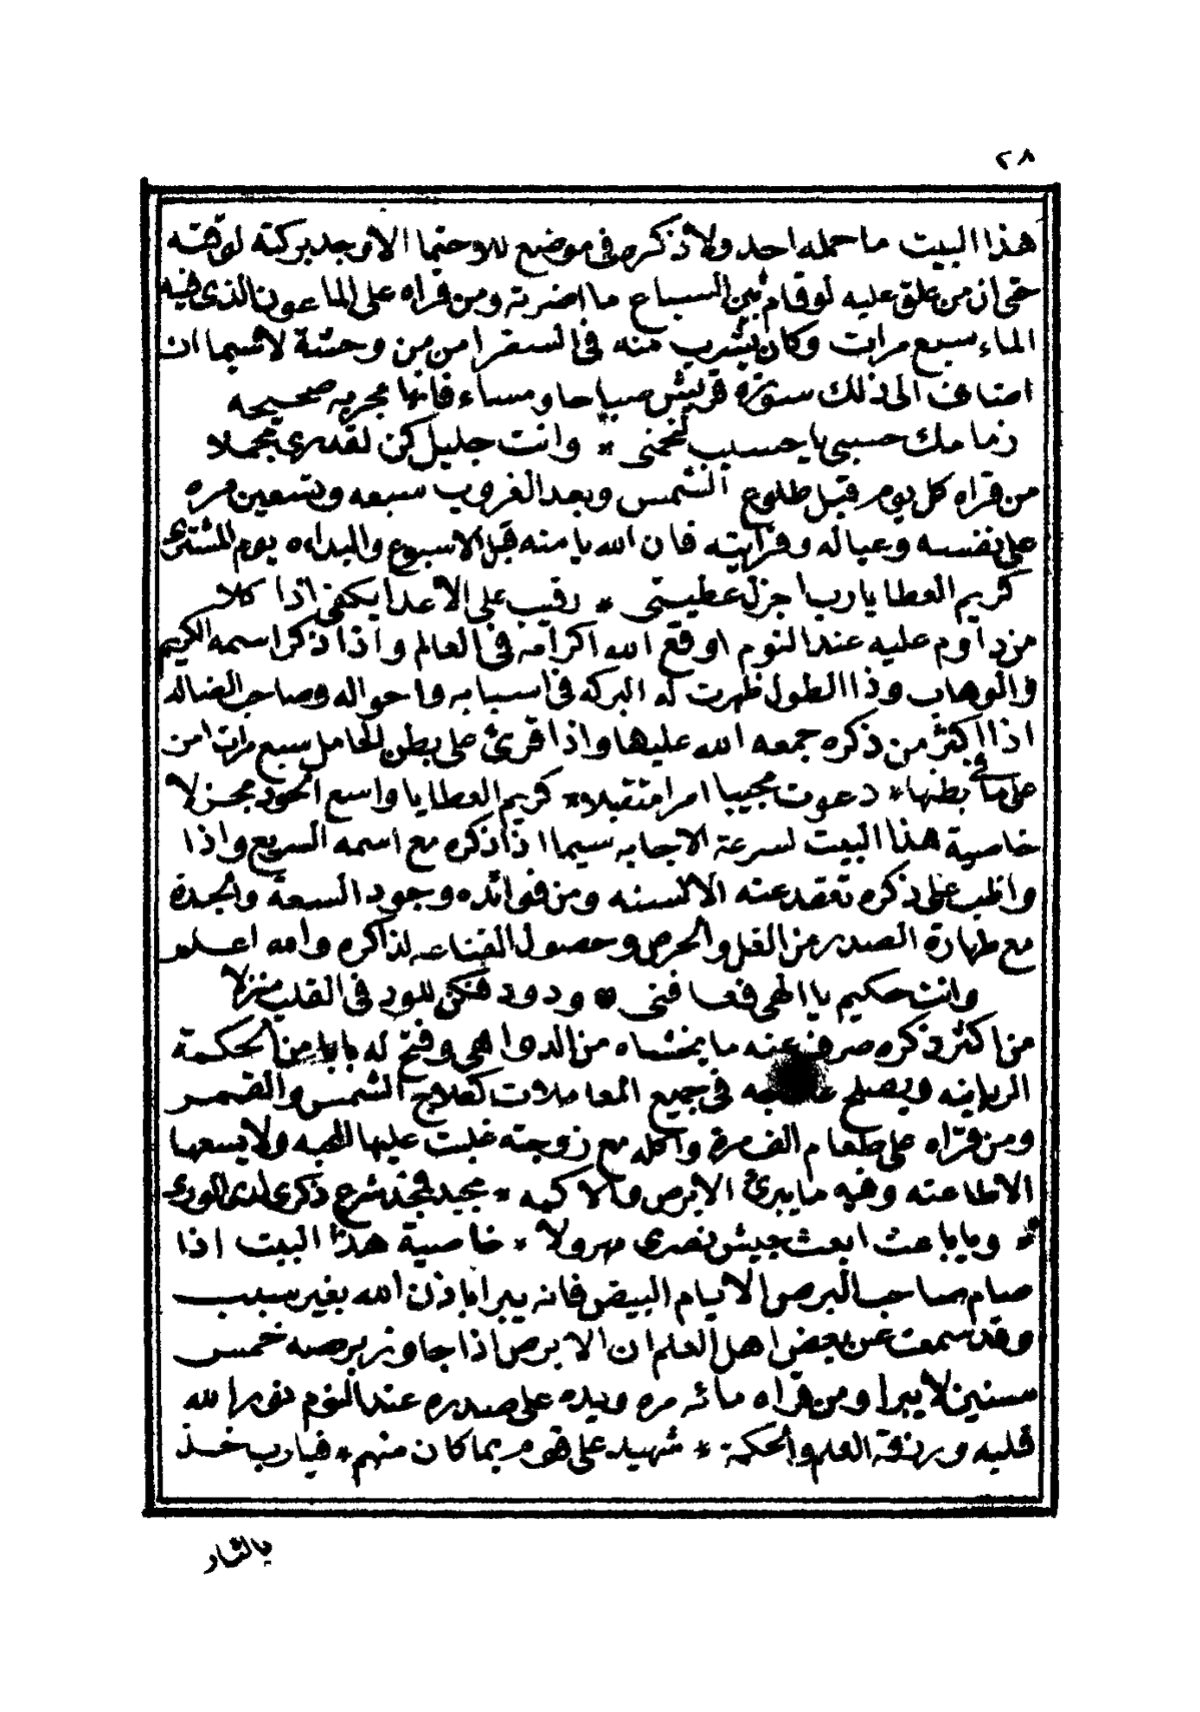 ٢٨
هذا البيت ما حمله احد ولا ذكره في موضع للاوحتما الاوجد بركته لوقته
حتى ان من علق عليه لو قام بين السباع ما اضرته ومن قراه على الماعون الذى فيه
الماء سبع مرات وكان يشرب منه في السفر امن من وحشة لاسيما ان
اضاف الى ذلك سورة قريش صباحا ومساء فانها مجربه صحيحه
زمامك حسبي يا حسيب نجحنى * وانت جليل كن لقدرى مجملا
من قراه كل يوم قبل طلوع الشمس وبعد الغروب سبعه وتسعين مره
على نفسه وعياله وقرابته فان الله يامنه قبل الاسبوع والبداءه يوم المشترى
كريم العطا يا رب اجزل عطيتى * رقيب على الاعدا يكفى اذا كلا
من داوم عليه عند النوم اوقع الله اكرامه في العالم واذا ذكر اسمه الكريم
والوهاب وذا الطول ظهرت له البركه في اسبابه واحواله وصاحب الضاله
اذا اكثر من ذكره جمعه الله عليها واذا قرئ على بطن الحامل سبع مرات امن
على ما في بطنها * دعوت مجيبا امرا متقبلا * كريم العطايا واسع الجود مجزلا
خاصية هذا البيت لسرعة الاجابه سيما اذا ذكره مع اسمه السريع واذا
واظب على ذكره تعقد عنه الالسنه ومن فوائده وجود السعة والجدة
مع طهارة الصدر من الغل والحرص وحصول القناعه لذاكره والله اعلم
وانت حكيم يا الهى فعافنى * ودود فكن للود في القلب منزلا
من اكثر ذكره صرف عنه ما يخشاه من الدواهى وفتح له بابا من الحكمة
الربانيه ويصلح في جميع المعاملات كعلاج الشمس والقمر
ومن قراه على طعام الف مرة واكله مع زوجته غلبت عليها المحبه ولا يسعها
الا طاعته وفيه ما يبرئ الابرص والاكيه * مجيد فمجد شرع ذكرى لدى الورى
* ويا باعث ابعث جيش نصرى مهرولا * خاصية هذا البيت اذا
صام صاحب البرص الايام البيض فانه يبرا باذن الله بغير سبب
وقد سمعت عن بعض اهل العلم ان الابرص اذا جاوز برصه خمس
سنين لا يبرا ومن قراه مائه مره ويده على صدره عند النوم نور الله
قلبه ورزقه العلم والحكمة * شهيد على قوم بما كان منهم * فيا رب خذ
بالثار